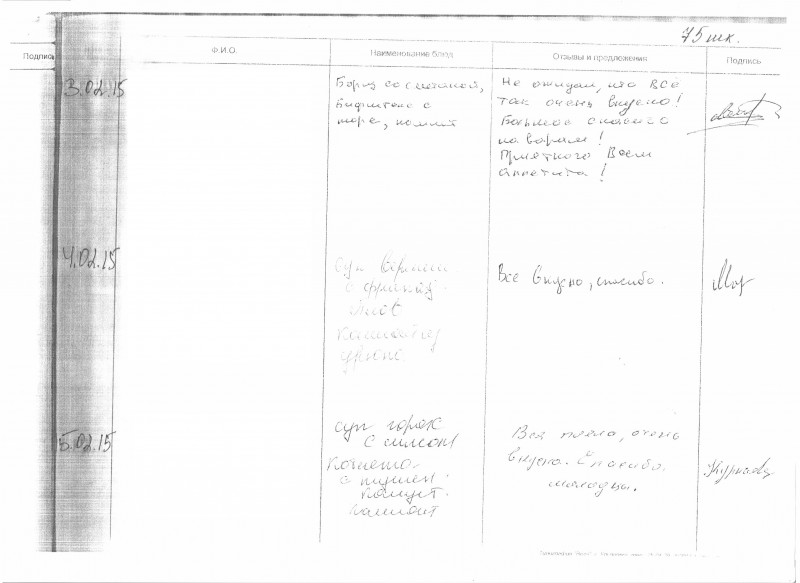 75 шк.
Подпись Ф.И.О. Наименование блюд Отзывы и предложения Подпись
3.02.15
Борщ со сметаной,
Бифштекс с
пюре, компот
Не ожидал, что всё
так очень вкусно!
Большое спасибо
поварам!
Приятного Всем
аппетита!
4.02.15
Суп вермеш
с фрикад
Всё вкусно, спасибо.
5.02.15
суп горох
с мясом
Котлета
с пюрем.
компот
Всё тепло, очень
вкусно. Спасибо
молодцы.